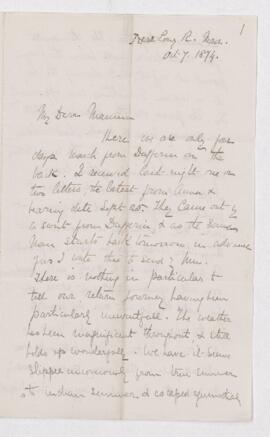 1
Oct. 7. 1874.
My Dear Mamma
Here we are only five
days march from Dufferin on the
back. I received last night
two letters the latest from Anna &
bearing date Sept 20. They came out by
a scout from Dufferin & as the same
man starts back tomorrow in advance
I write this to send by him.
There is nothing in particular to
tell our return journey having been
particularly uneventful. The weather
has been magnificent throughout, & still
holds up wonderfully. We have it seems
slipped unconsciously from true summer
to indian summer & escaped equinoctial